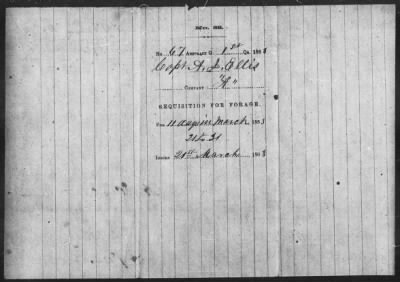 No. 67 Abstract G. 1st Qr. 1863
Capt A. J. Ellis
Company "A"
REQUISITION FOR FORAGE.
For 11 days in March 1863
21 to 31
Issued 21st March 1863